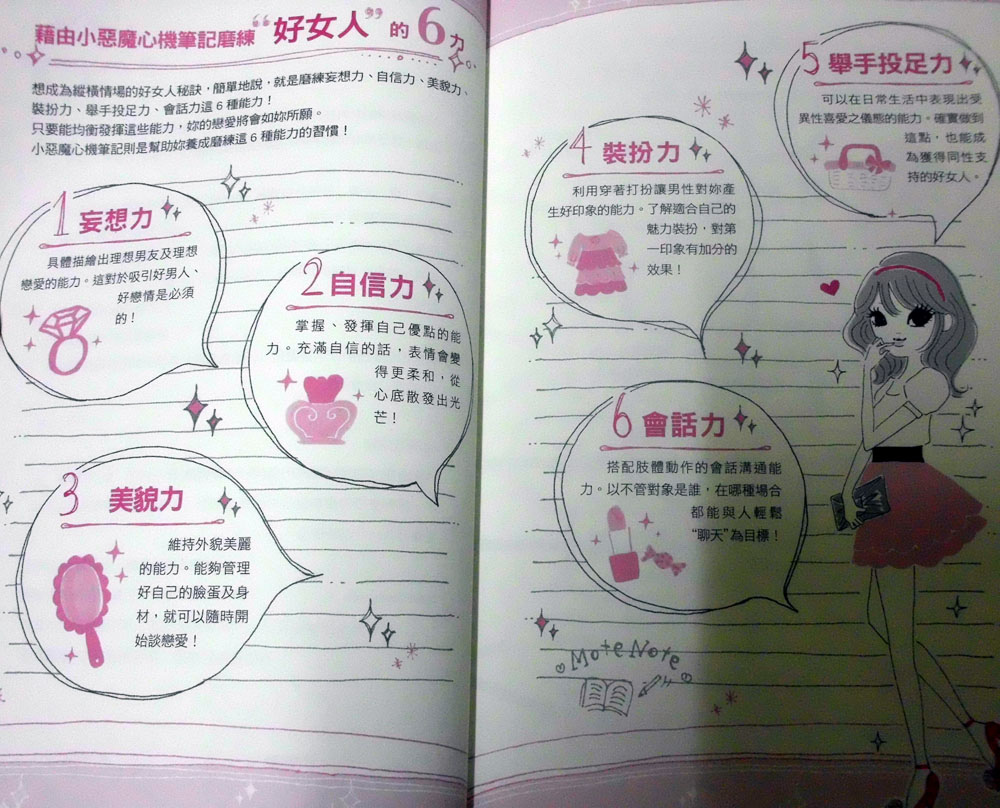 藉由小惡魔心機筆記磨練“好女人”的6力
想成為縱橫情場的好女人秘訣，簡單地說，就是磨練妄想力、自信力、美貌力、
裝扮力、舉手投足力、會話力這6種能力！
只要能均衡發揮這些能力，妳的戀愛將會如妳所願。
小惡魔心機筆記則是幫助妳養成磨練這6種能力的習慣！
1 妄想力
具體描繪出理想男友及理想
戀愛的能力。這對於吸引好男人、
好戀情是必須
的！
2 自信力
掌握、發揮自己優點的能
力。充滿自信的話，表情會變
得更柔和，從
心底散發出光
芒！
3 美貌力
維持外貌美麗
的能力。能夠管理
好自己的臉蛋及身
材，就可以隨時開
始談戀愛！
4 裝扮力
利用穿著打扮讓男性對妳產
生好印象的能力。了解適合自己的
魅力裝扮，對第
一印象有加分的
效果！
5 舉手投足力
可以在日常生活中表現出受
異性喜愛之儀態的能力。確實做到
這點，也能成
為獲得同性支
持的好女人。
6 會話力
搭配肢體動作的會話溝通能
力。以不管對象是誰，在哪種場合
都能與人輕鬆
“聊天”為目標！
Mote Note